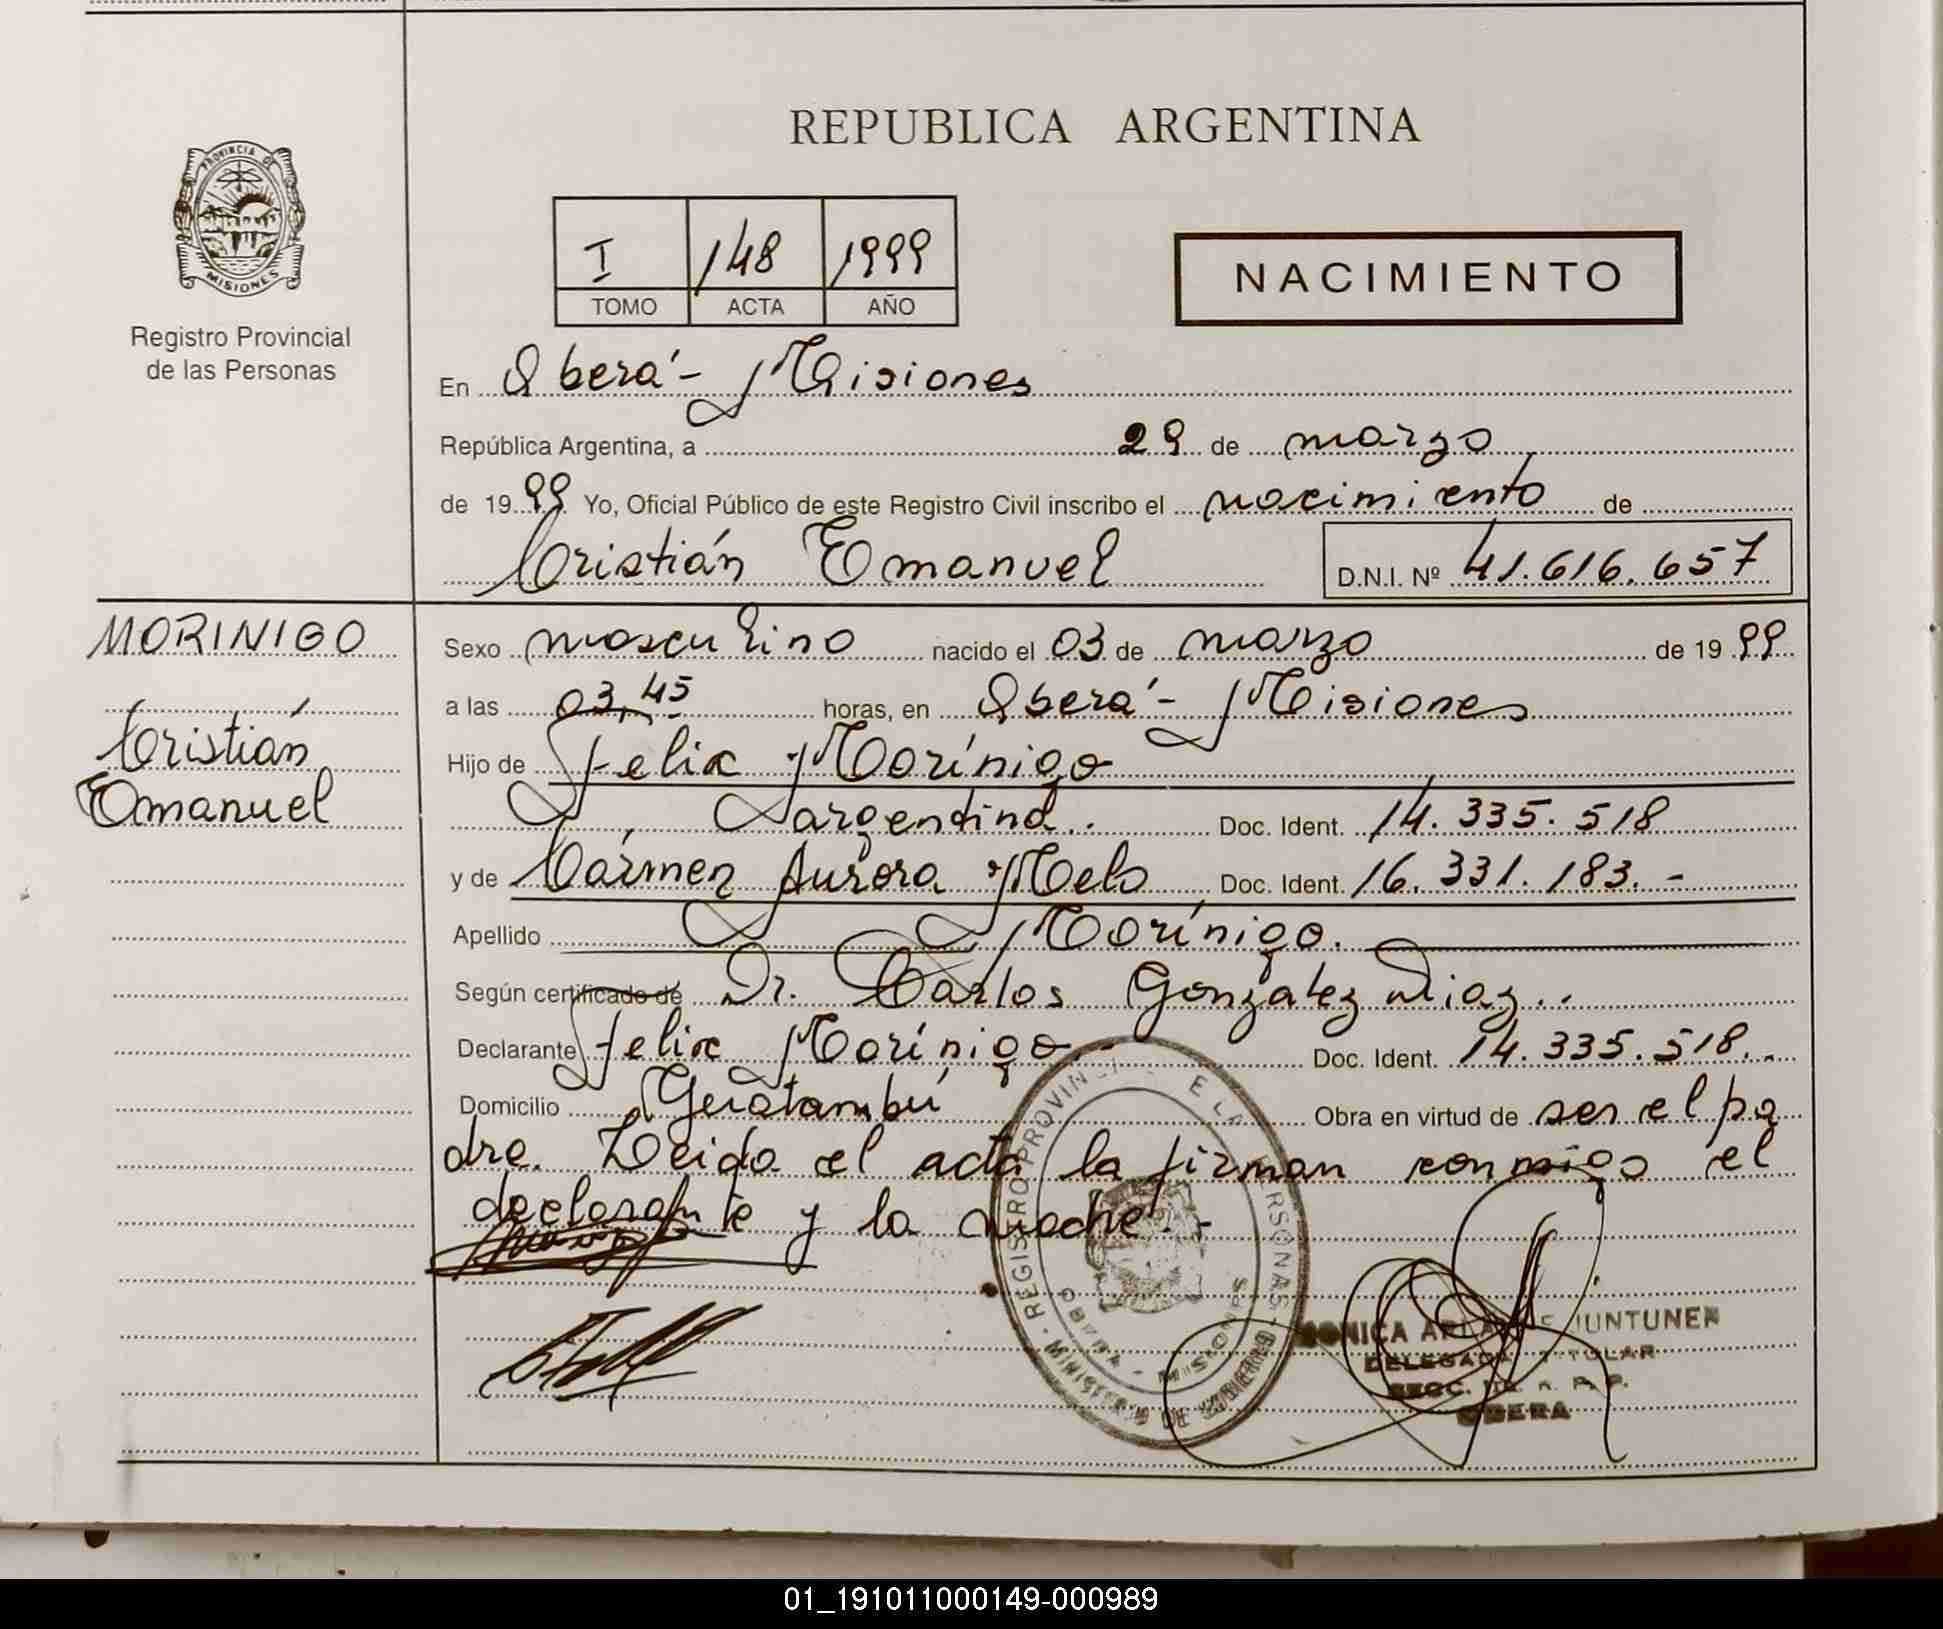 REPUBLICA ARGENTINA
PROVINCIA DE
MISIONES
Registro Provincial
de las Personas
I 148 1999
TOMO ACTA AÑO
NACIMIENTO
En Oberá - Misiones
República Argentina, a 29 de marzo
de 1999 Yo, Oficial Público de este Registro Civil inscribo el nacimiento de
Cristián Emanuel D.N.I. Nº 41.616.657
MORINIGO
Cristián
Emanuel
Sexo masculino nacido el 03 de marzo de 1999
a las 03,45 horas, en Oberá - Misiones
Hijo de Felix Morínigo
argentina.. Doc. Ident. 14.335.518
y de Cármen Aurora Melo Doc. Ident. 16.331.183.-
Apellido Morínigo.
Según certificado de Dr. Carlos Gonzalez Diaz..
Declarante Felix Morínigo.- Doc. Ident. 14.335.518..
Domicilio Obra en virtud de ser el pa
dre. Leido el acta la firman conmigo el
declarante y la madre.-
REGISTRO PROVINCIAL DE LAS PERSONAS
MINISTERIO DE GOBIERNO
OBERA - MISIONES
MONICA DE JUNTUNEN
DELEGADA TITULAR
OBERA
01_191011000149-000989